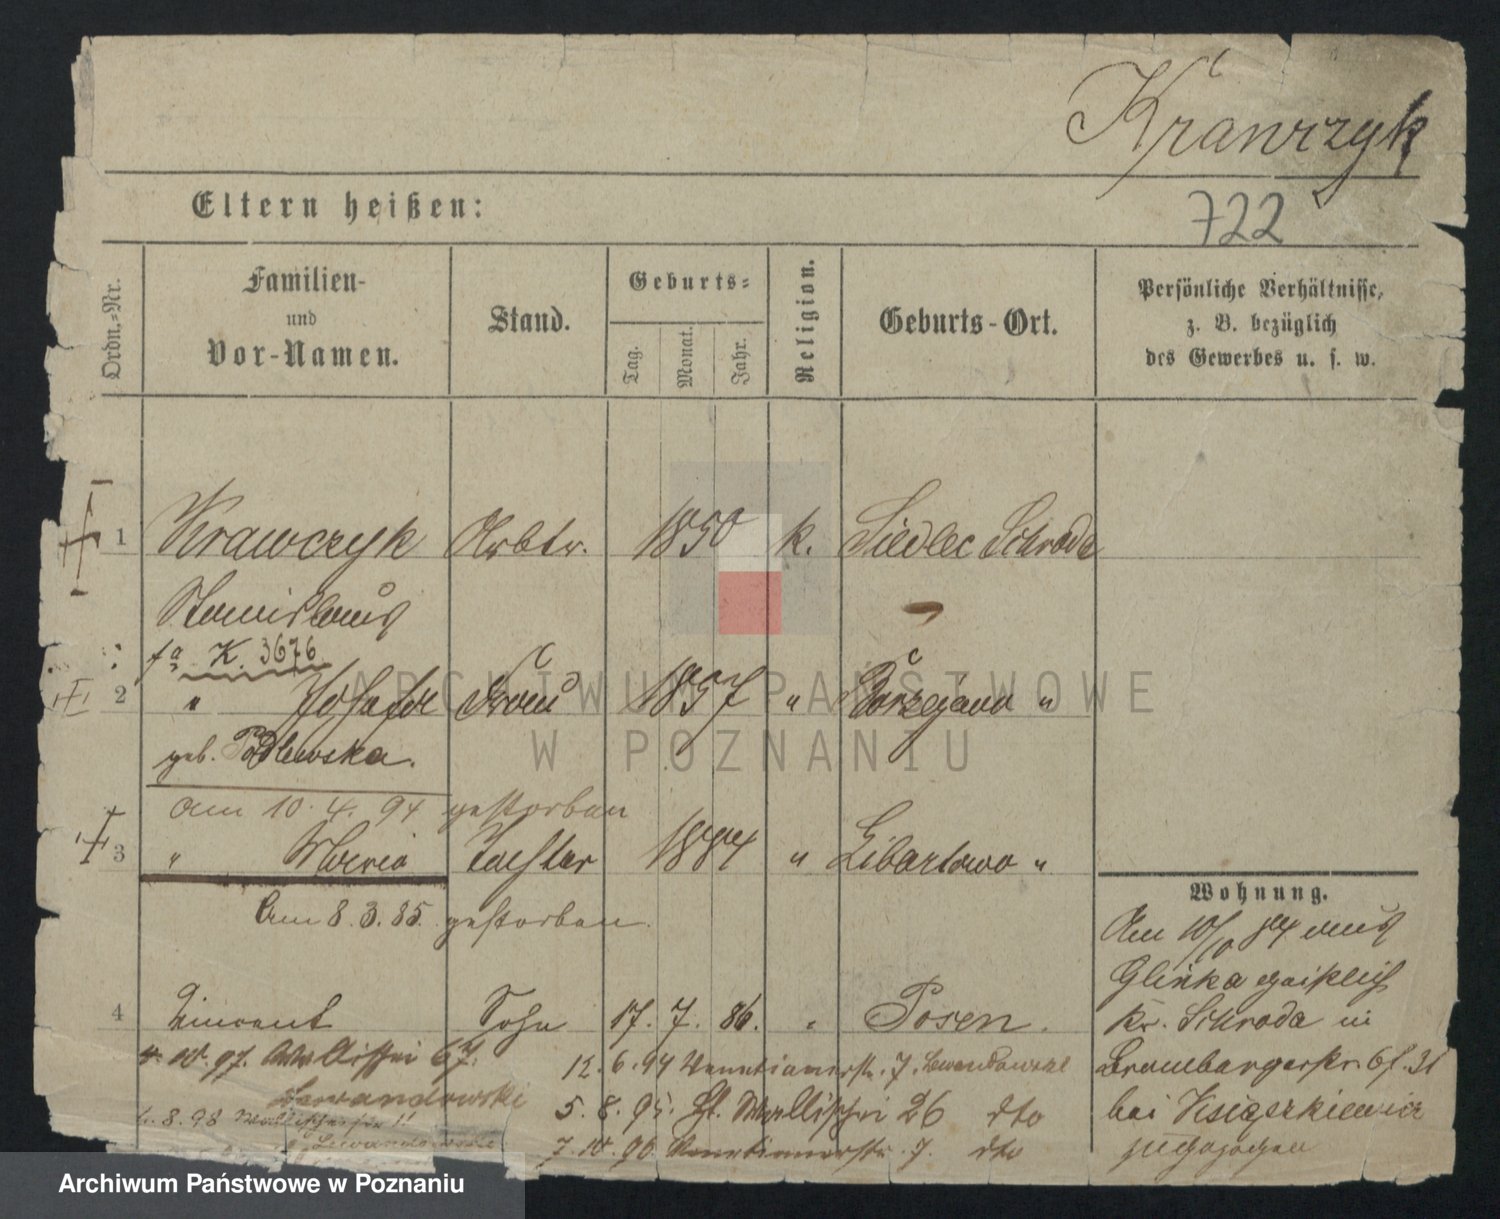 Krawczyk
Eltern heißen:
722
Ordn.-Nr.
Familien-
und
Vor-Namen.
Stand.
Geburts-
Tag.
Monat.
Jahr.
Religion.
Geburts-Ort.
Persönliche Verhältnisse,
z. B. bezüglich
des Gewerbes u. s. w.
1 Krawczyk Arbtr. 1850 k. Siedlec Schroda
Stanislaus
K. 3676
2 " Josefa Frau 1857 " "
geb. Podlewska.
am 10. 4. 94 gestorben
3 " Maria Tochter 1884 " Libartowo "
Am 8. 3. 85. gestorben.
Wohnung.
Am 10/ 84 aus
Glinka
4 Vincent Sohn 17. 7. 86. " Posen.
Kr. Schroda in
97. Wallischei 67. 12. 6. 94 Venetianerstr. 7. Brombergerstr.
Lewandowski 5. 8. 95. Wallischei 26 dto bei
8. 98 Wallischei 11
Lewandowski 7. 10. 96 Venetianerstr. 7. dto zugezogen
ARCHIWUM PAŃSTWOWE
W POZNANIU
Archiwum Państwowe w Poznaniu